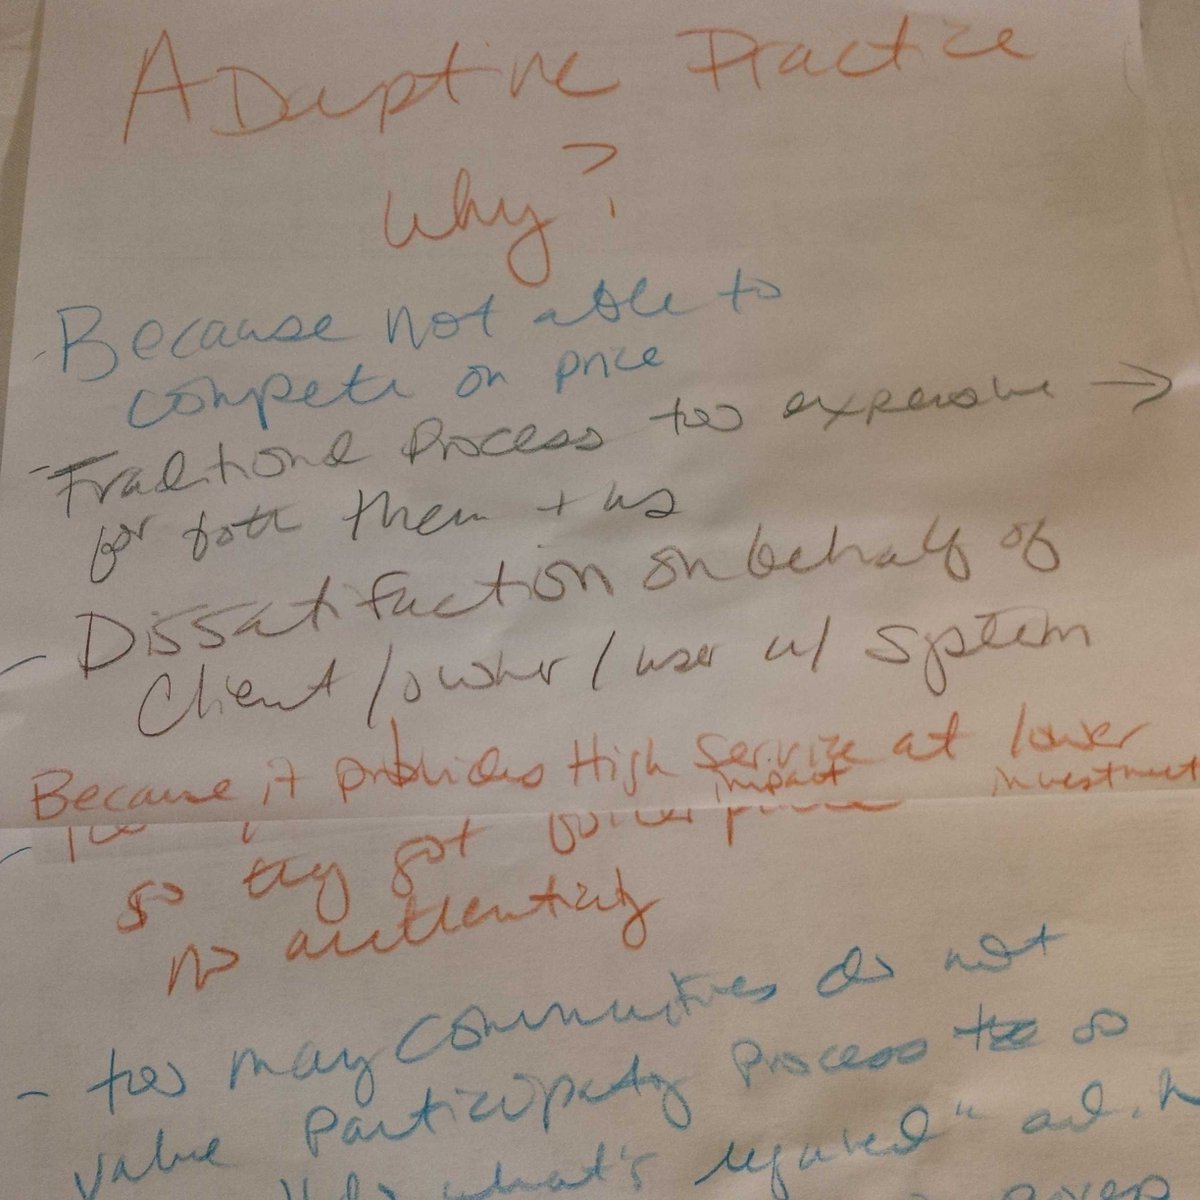 ADaptive Practice
Why?
- Because not able to
compete on price
- Traditional Process too expensive →
for both them + us
- Dissatisfaction on behalf of
Client/owner/user w/ system
Because it provides High Service at lower
impact investment
so they got
no authenticity
- too may communities do not
value Participaty Process so
what's required" and